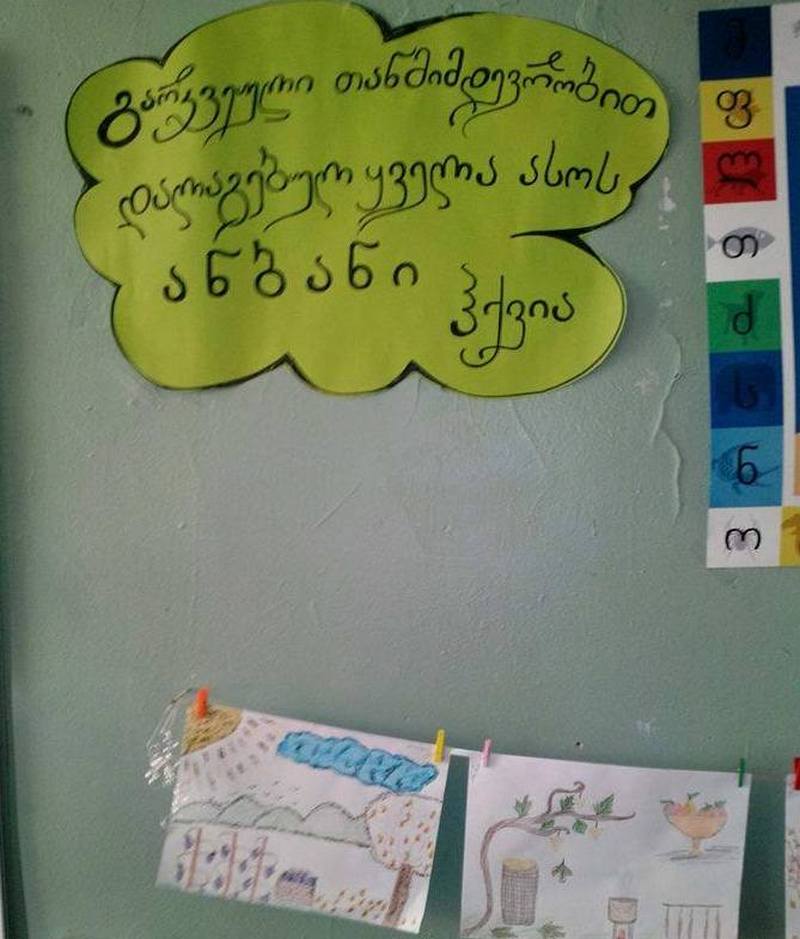 გარკვეული თანმიმდევრობით
დალაგებულ ყველა ასოს
ანბანი ჰქვია
ფ
ლ
თ
ძ
ს
ნ
ო